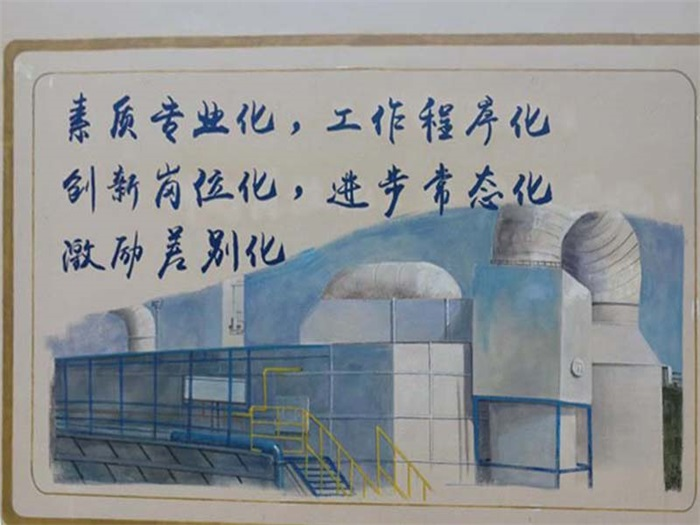 素质专业化，工作程序化
创新岗位化，进步常态化
激励差别化